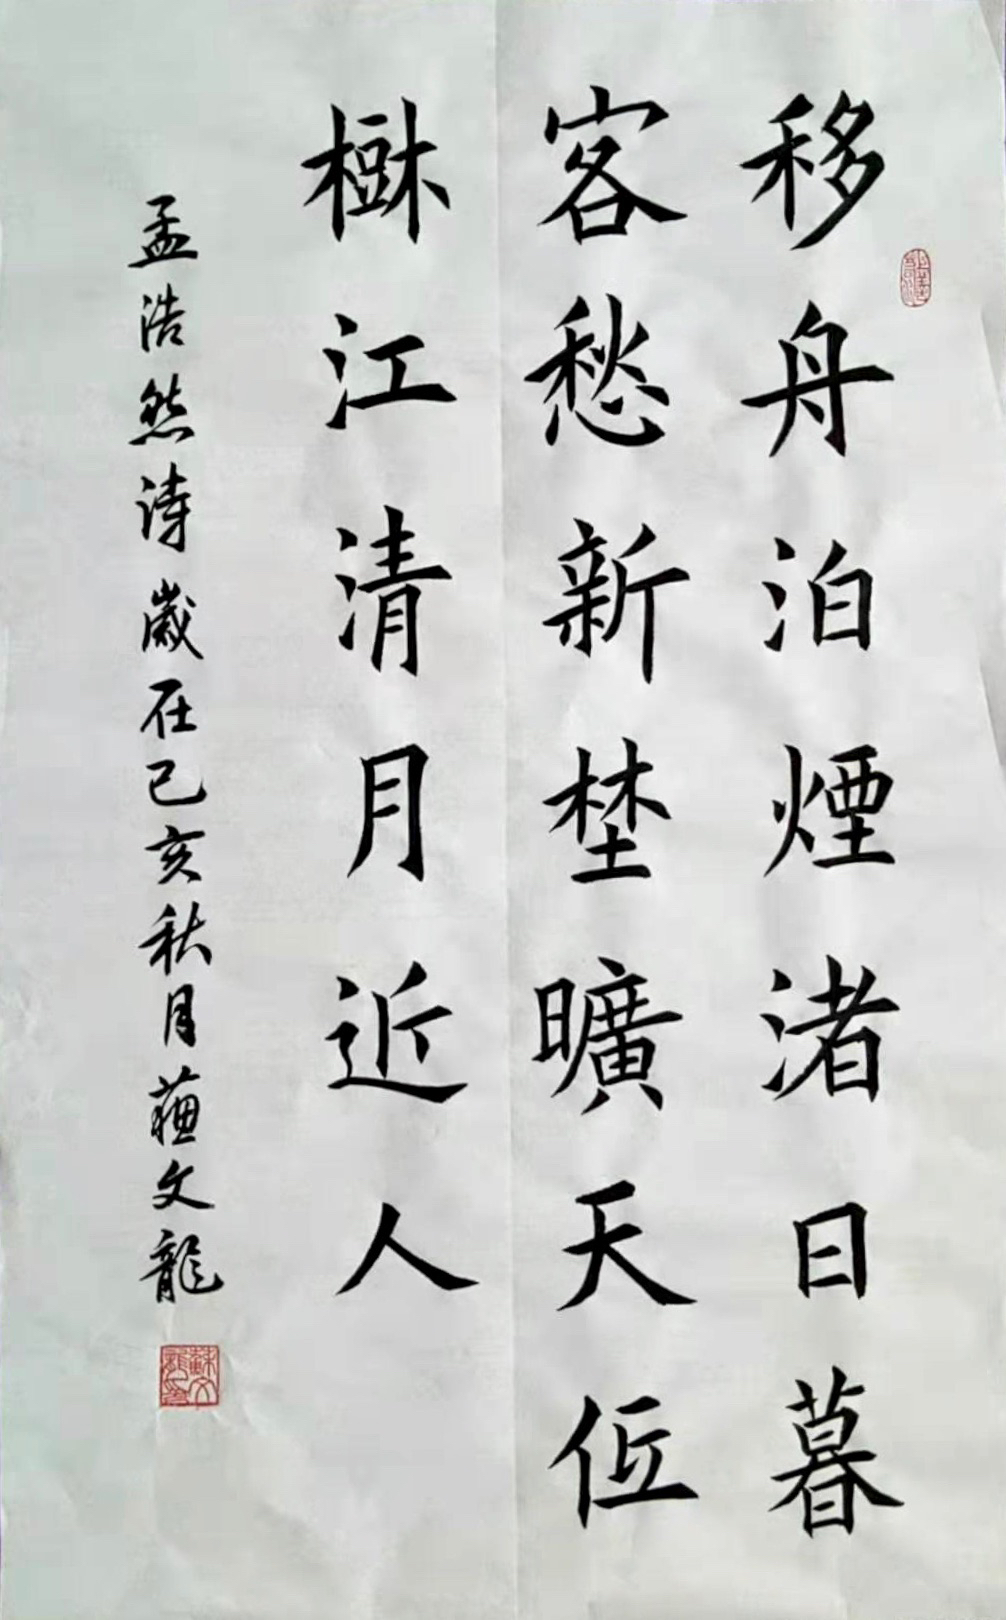 移舟泊煙渚日暮
客愁新埜曠天低
樹江清月近人
孟浩然詩歲在己亥秋月蘇文龍